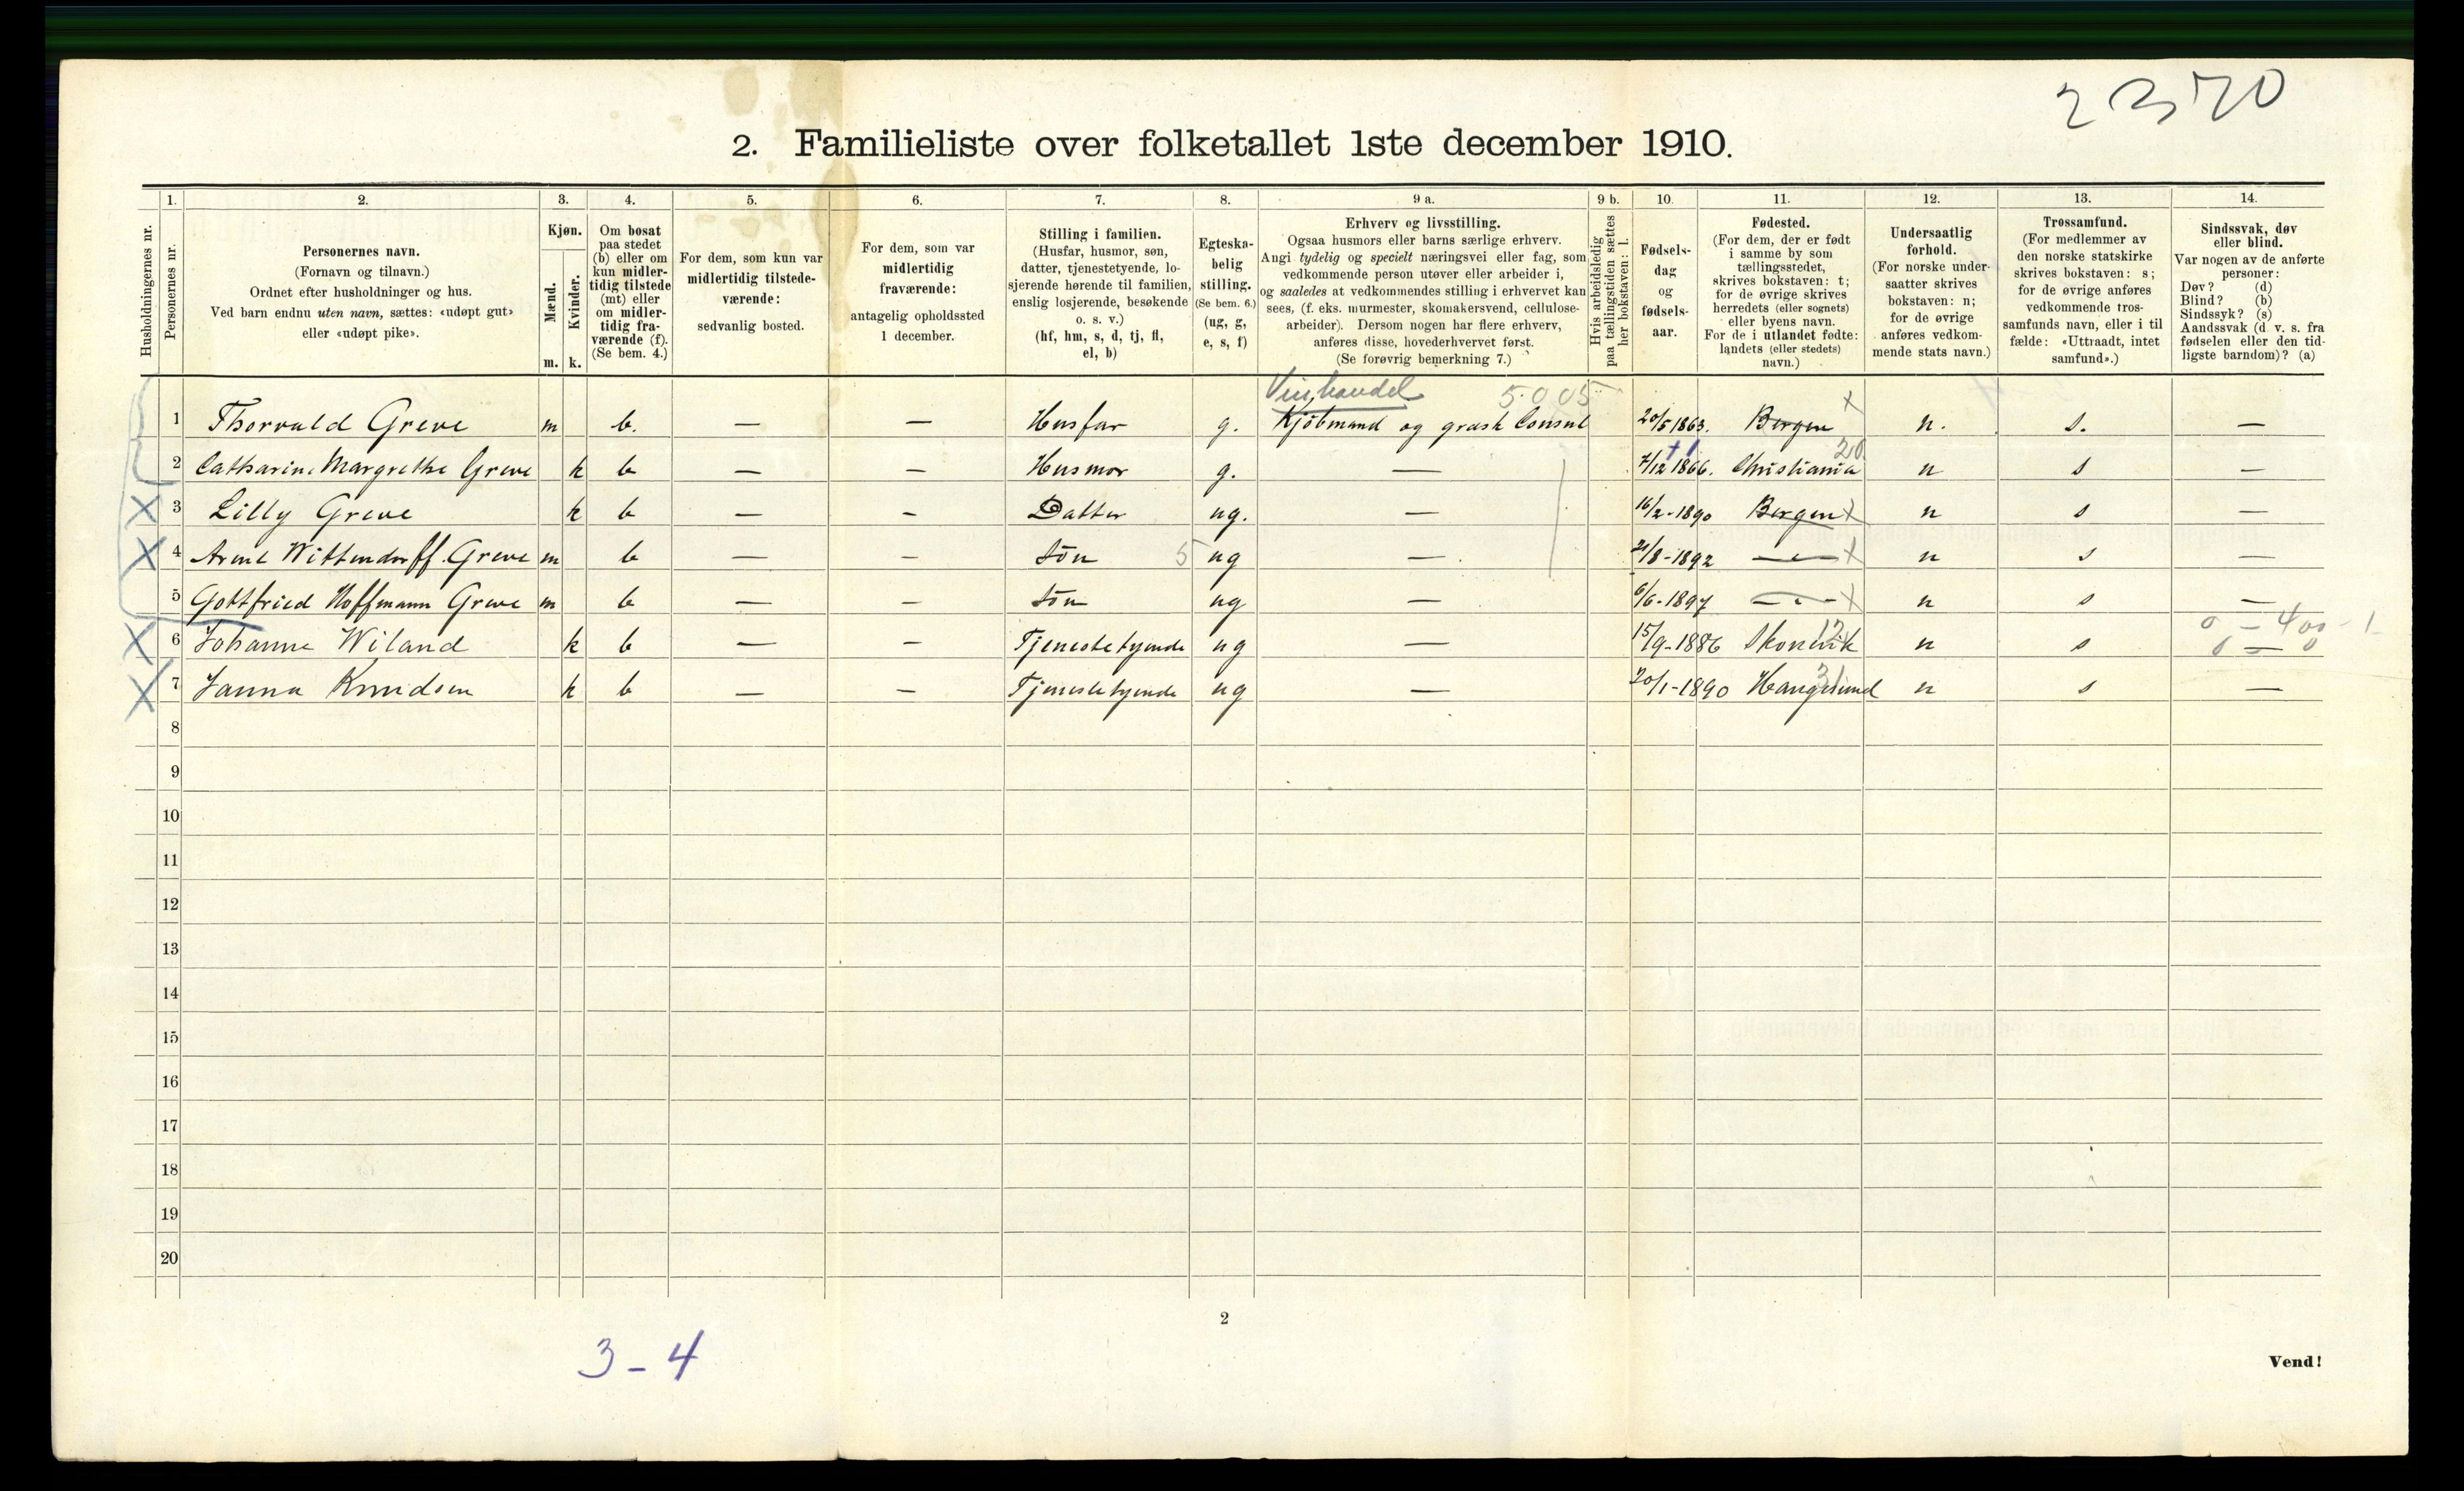 2370
2. Familieliste over folketallet 1ste december 1910.
1. 2. 3. 4. 5. 6. 7. 8. 9 a. 9 b. 10. 11. 12. 13. 14.
Husholdningernes nr.
Personernes nr.
Personernes navn.
(Fornavn og tilnavn.)
Ordnet efter husholdninger og hus.
Ved barn endnu uten navn, sættes: «udøpt gut»
eller «udøpt pike».
Kjøn.
Mænd.
Kvinder.
m. k.
Om bosat
paa stedet
(b) eller om
kun midler-
tidig tilstede
(mt) eller
om midler-
tidig fra-
værende (f).
(Se bem. 4.)
For dem, som kun var
midlertidig tilstede-
værende:
sedvanlig bosted.
For dem, som var
midlertidig
fraværende:
antagelig opholdssted
1 december.
Stilling i familien.
(Husfar, husmor, søn,
datter, tjenestetyende, lo-
sjerende hørende til familien,
enslig losjerende, besøkende
o. s. v.)
(hf, hm, s, d, tj, fl,
el, b)
Egteska-
belig
stilling.
(Se bem. 6.)
(ug, g,
e, s, f)
Erhverv og livsstilling.
Ogsaa husmors eller barns særlige erhverv.
Angi tydelig og specielt næringsvei eller fag, som
vedkommende person utøver eller arbeider i,
og saaledes at vedkommendes stilling i erhvervet kan
sees, (f. eks. murmester, skomakersvend, cellulose-
arbeider). Dersom nogen har flere erhverv,
anføres disse, hovederhvervet først.
(Se forøvrig bemerkning 7.)
Hvis arbeidsledig
paa tællingstiden sættes
her bokstaven: l.
Fødsels-
dag
og
fødsels-
aar.
Fødested.
(For dem, der er født
i samme by som
tællingsstedet,
skrives bokstaven: t;
for de øvrige skrives
herredets (eller sognets)
eller byens navn.
For de i utlandet fødte:
landets (eller stedets)
navn.)
Undersaatlig
forhold.
(For norske under-
saatter skrives
bokstaven: n;
for de øvrige
anføres vedkom-
mende stats navn.)
Trossamfund.
(For medlemmer av
den norske statskirke
skrives bokstaven: s;
for de øvrige anføres
vedkommende tros-
samfunds navn, eller i til
fælde: «Uttraadt, intet
samfund».)
Sindssvak, døv
eller blind.
Var nogen av de anførte
personer:
Døv? (d)
Blind? (b)
Sindssyk? (s)
Aandssvak (d v. s. fra
fødselen eller den tid-
ligste barndom)? (a)
Vinhandel 5.005
1 Thorvald Greve m b. — — Husfar g. Kjöbmand og græsk Consul 20/5 1863. Bergen x n. s. —
2 Catharine Margrethe Greve k b — — Husmor g. — 7/12 1866. Christiania 20 n s —
x 3 Lilly Greve k b — — Datter ug. — 16/2-1890 Bergen x n s —
x 4 Arent Wittendorff Greve m b — — Sön 5 ug — 21/8-1892 — x n s —
5 Gottfried Hoffmann Greve m b — — Sön ug — 6/6-1897 — x n s —
0 — 400 - 1
x 6 Johanne Wiland k b — — Tjenestetyende ug — 15/9-1886 Skonevik 12 n s 0 — 0
x 7 Janna Knudsen k b — — Tjenestetyende ug — 20/1-1890 Haugesund 31 n s —
8
9
10
11
12
13
14
15
16
17
18
19
20
2
3 - 4
Vend!